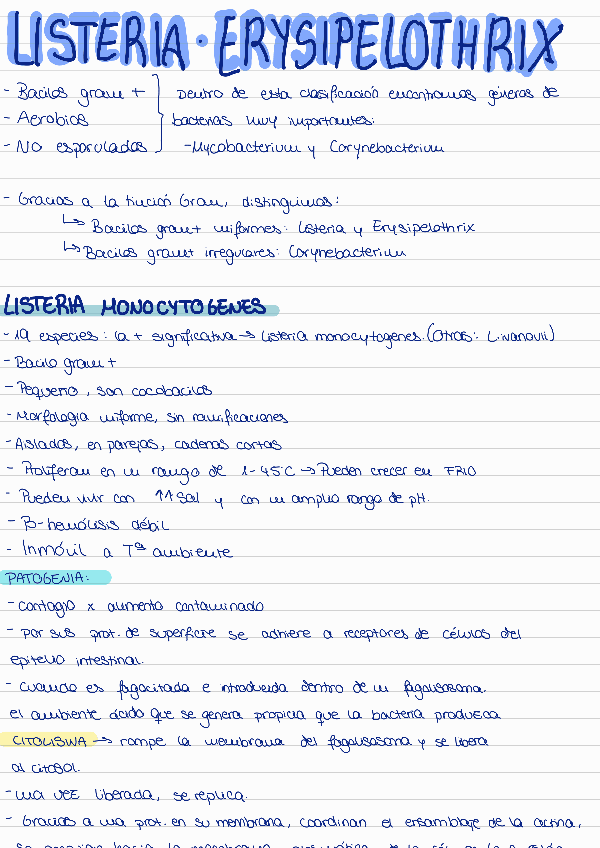 LISTERIA · ERYSIPELOTHRIX
- Bacilos gram + Dentro de esta clasificación encontramos géneros de
- Aerobios bacterias muy importantes:
- NO esporulados -Mycobacterium y Corynebacterium
- Gracias a la tinción Gram, distinguimos:
↳ Bacilos gram+ uniformes: Listeria y Erysipelothrix
↳ Bacilos gram+ irregulares: Corynebacterium
LISTERIA MONOCYTOGENES
- 19 especies: la + significativa → Listeria monocytogenes. (Otras: L. ivanovii)
- Bacilo gram +
- Pequeño, son cocobacilos
- Morfología uniforme, sin ramificaciones
- Aislados, en parejas, cadenas cortas
- Proliferan en un rango de 1-45C → Pueden crecer en FRIO
- Pueden vivir con ↑↑ sal y con un amplio rango de pH.
- B-hemólisis débil
- Inmóvil a Tª ambiente
PATOGENIA:
- contagio x alimento contaminado
- por sus prot. de superficie se adhiere a receptores de células del
epitelio intestinal.
- cuando es fagocitada e introducida dentro de un fagolisosoma.
el ambiente ácido que se genera propicia que la bacteria produzca
CITOLISINA → rompe la membrana del fagolisosoma y se libera
al citosol.
- una vez liberada, se replica.
- Gracias a una prot. en su membrana, coordinan el ensamblaje de la actina,